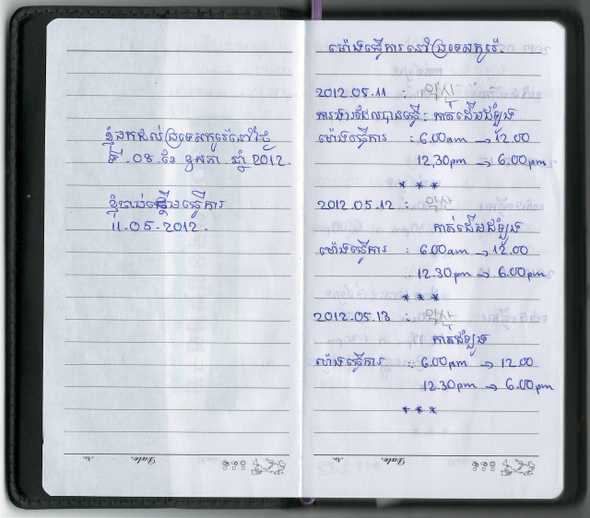 ខ្ញុំមកដល់ប្រទេសកូរ៉េនៅថ្ងៃ
ទី. 08. ខែ ឧសភា. ឆ្នាំ 2012.
ខ្ញុំចាប់ផ្តើមធ្វើការ
11.05.2012.
ម៉ោងធ្វើការនៅប្រទេសកូរ៉េ.
2012.05.11 : 일산
ការងារដែលបានធ្វើ : កាត់ដើមដំឡូង
ម៉ោងធ្វើការ : 6.00am → 12.00
12,30pm → 6.00pm
* * *
2012.05.12 : 일산
កាត់ដើមដំឡូង
ម៉ោងធ្វើការ : 6.00am → 12.00
12.30pm → 6.00pm
* * *
2012.05.13 : 일산
កាត់ដំឡូង
ម៉ោងធ្វើការ : 6.00am → 12.00
12.30pm → 6.00pm
* * *
Date. No.
Date. No.